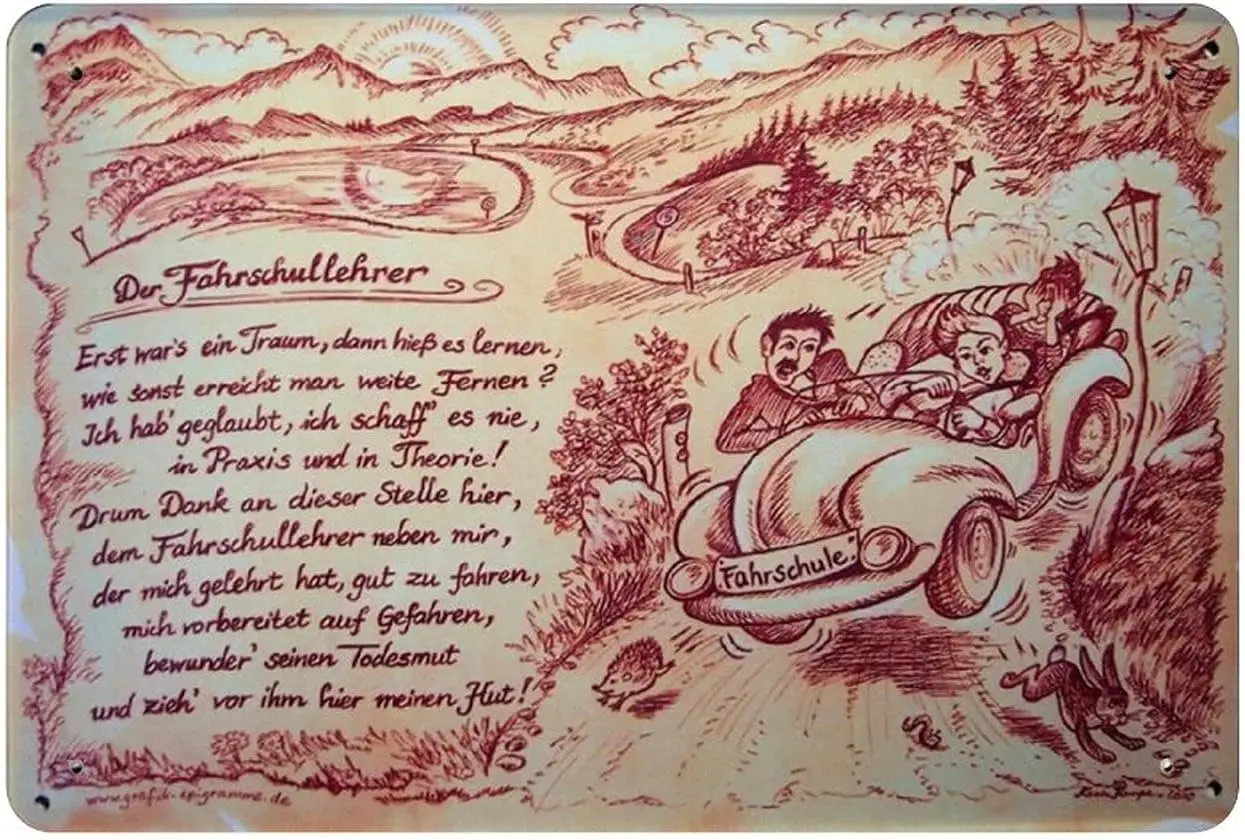 Der Fahrschullehrer
Erst war's ein Traum, dann hieß es lernen,
wie sonst erreicht man weite Fernen?
Ich hab' geglaubt, ich schaff' es nie,
in Praxis und in Theorie!
Drum Dank an dieser Stelle hier,
dem Fahrschullehrer neben mir,
der mich gelehrt hat, gut zu fahren,
mich vorbereitet auf Gefahren,
bewunder' seinen Todesmut
und zieh' vor ihm hier meinen Hut!
Fahrschule
www.grafik-epigramme.de